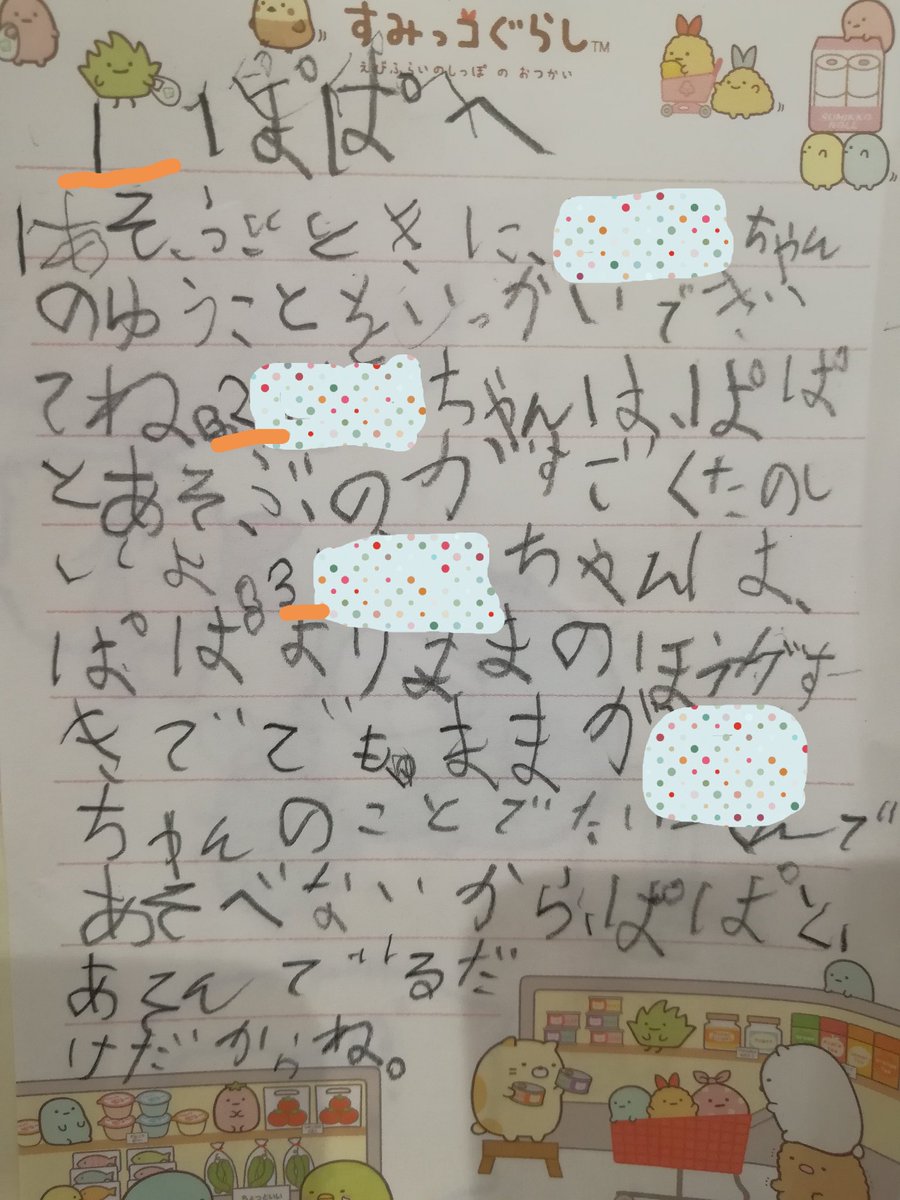 すみっコぐらし™
えびふらいのしっぽ の おつかい
SUMIKKO
ROLL
ぱぱへ
あそぶときに、
ちゃん
のゆうことをいっかいできい
てね。
ちゃんは、ぱぱ
とあそぶのがすごくたのし
いよ
ちゃんは、
ぱぱよりままのほうがす
きでも。ままが
ちゃんのことで
で
あそべないから、ぱぱと、
あそんでるだ
けだからね。